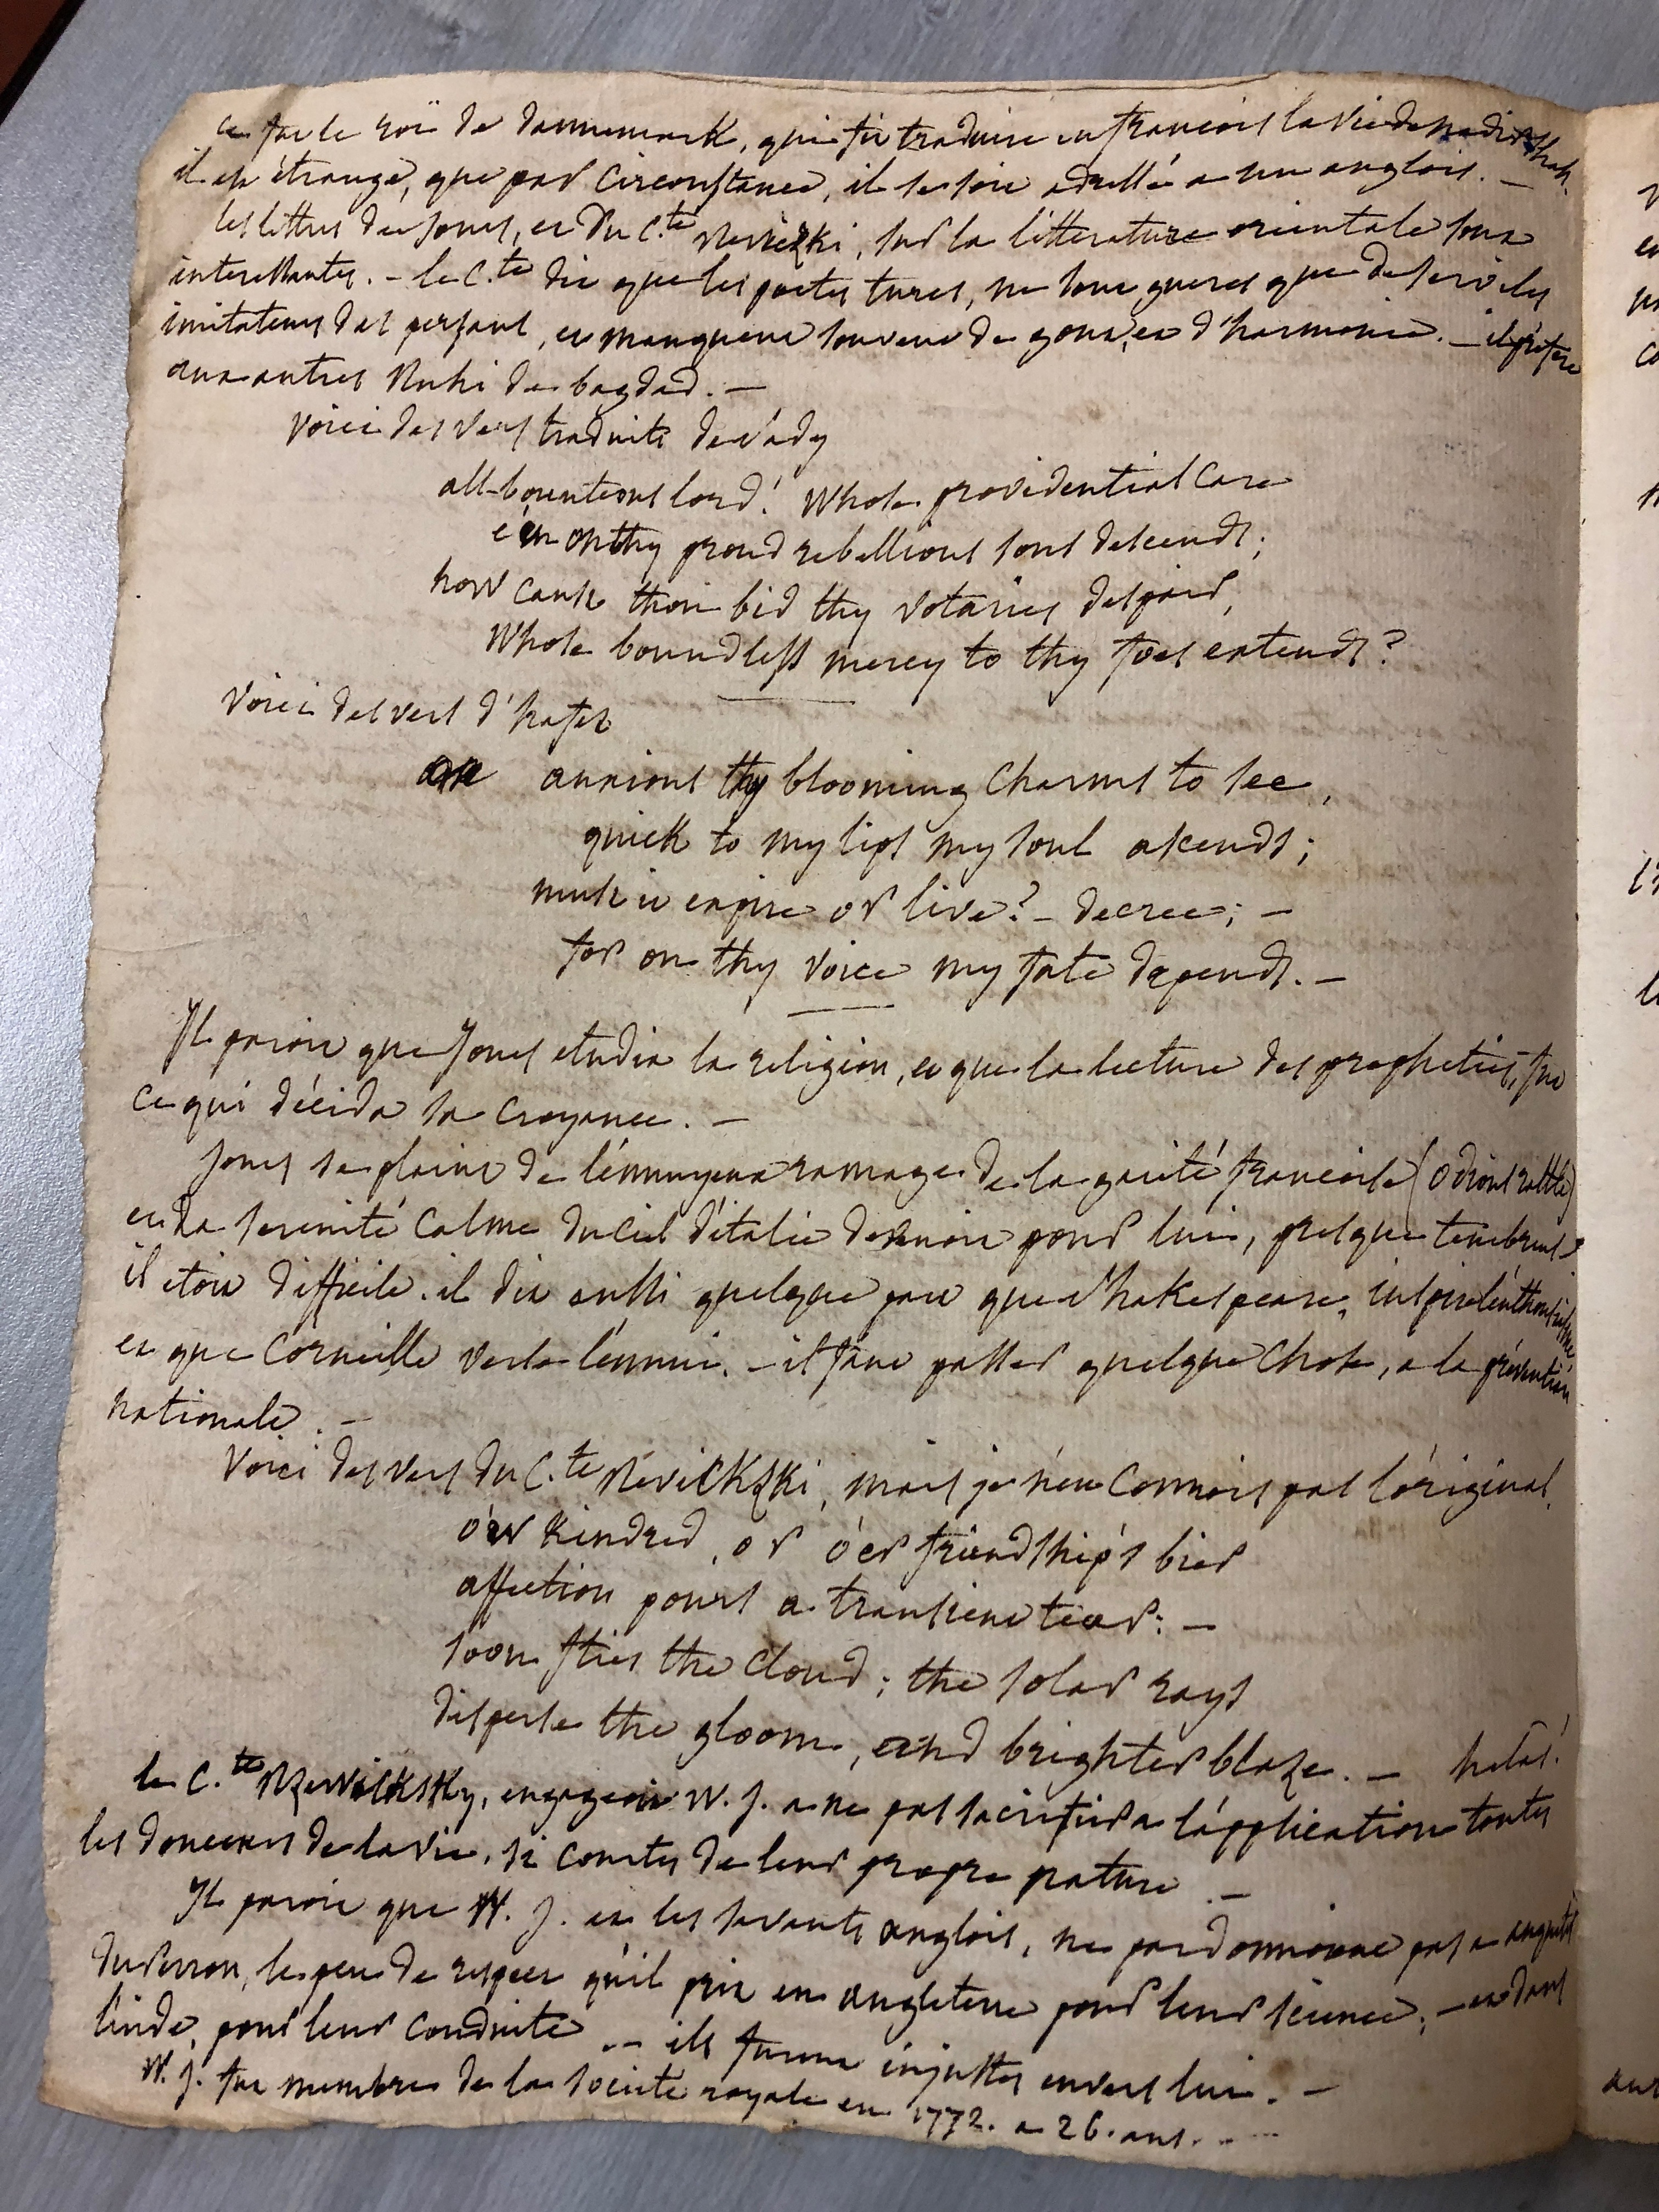 ce fut le roi de dannemark, qui fit traduire en francois la vie de nadir shah.
il est étrange, que par circonstance, il se soit adressé a un anglois. —
les lettres de jones, et du C.te reviezki, sur la litterature orientale sont
interessantes. – le C.te dit que les poetes turcs, ne sont gueres que de serviles
imitateurs des persans, et manquent souvent de gout, et d'harmonie. – il préfère
aux autres Ruhi de bagdad. —
voici des vers traduits de sady
all-bounteous lord! whose providential care
e'en on thy proud rebellious sons descends;
how canst thou bid thy votaries despair,
whose boundless mercy to thy foes extends?
voici des vers d'hafez
anxious thy blooming charms to see,
quick to my lips my soul ascends;
must it expire or live? – decree; –
for on thy voice my fate depends. —
Il paroit que jones etudia la religion, et que la lecture des propheties, fut
ce qui décida sa croyance. —
jones se plaint de l'ennuyeux ramage de la gaieté francoise (odious rattle)
et la serenité calme du ciel d'italie devenoit pour lui, presque tenebreuse
il etoit difficile. il dit aussi quelque part que shakespeare, inspire l'enthousiasme
et que Corneille verse l'ennui. – il faut passer quelque chose, a la prévention
nationale. —
Voici des vers du C.te Revickzki, mais je n'en connois pas l'original.
o'er kindred, or o'er friendship's bier
affection pours a transient tear: —
soon flies the cloud; the solar rays
disperse the gloom, and brighter blaze. — helas!
le C.te Rzewicksky, engageoit W. J. a ne pas sacrifier a l'application toutes
les douceurs de la vie, si courtes de leur propre nature. —
Il paroit que W. J. et les savants anglois, ne pardonnoient pas a anquetil
du Perron, le peu de respect qu'il prit en angleterre pour leur science, – et dans
l'inde, pour leur conduite. – ils furent injustes envers lui. —
W. J. fut membre de la societé royale en 1772. a 26. ans. —